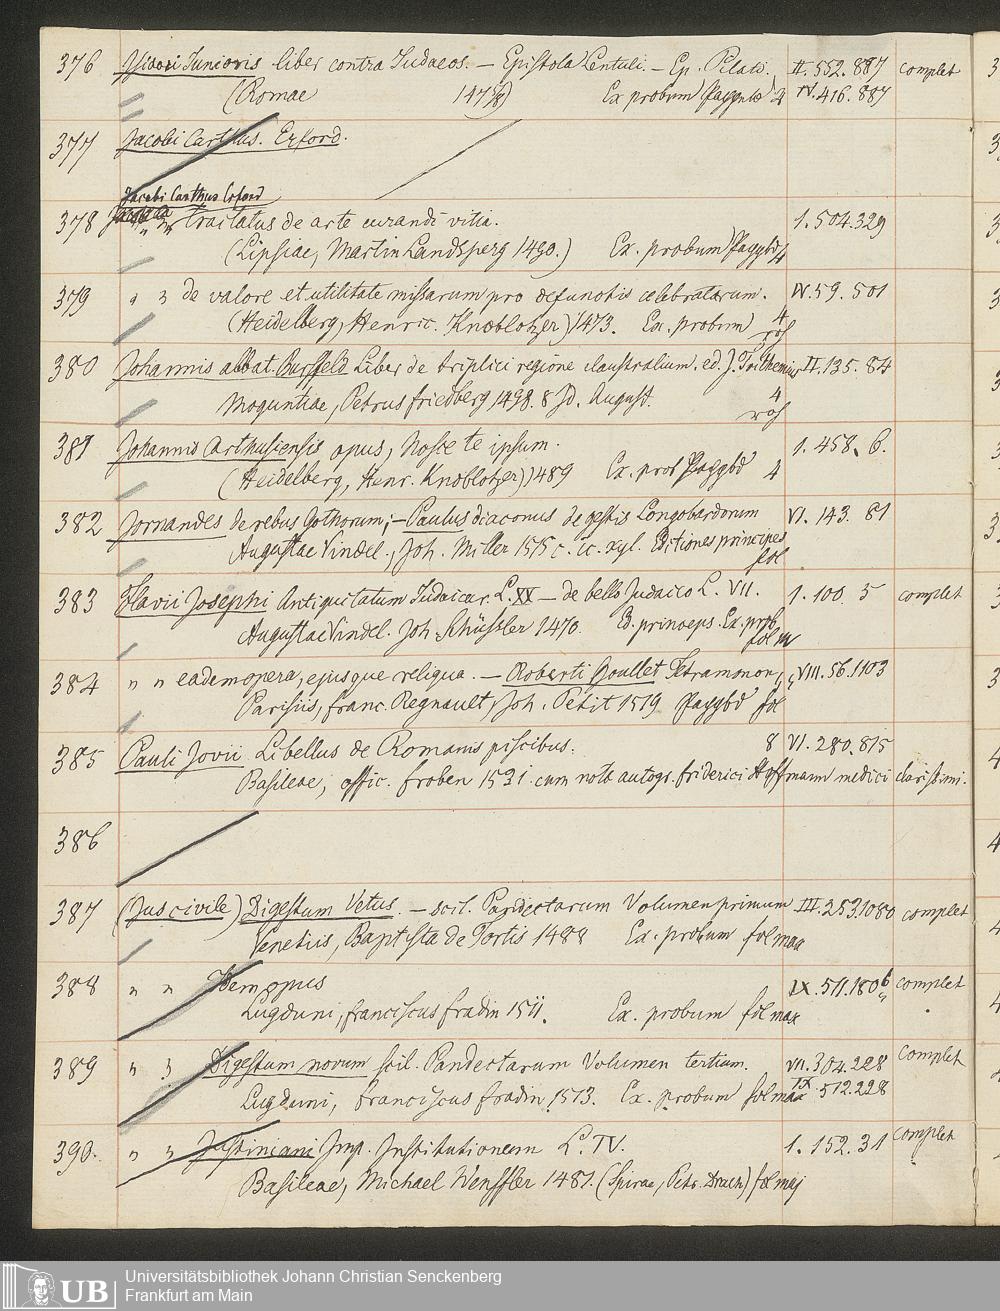 376 Isidori Junioris liber contra Judaeos. — Epistola Lentuli. — Ep. Pilati. II. 552. 887 complet
(Romae 147⅞) Ex probum Paggbd 4 IV. 416. 887
377 Jacobi Carthus. Erford.
Jacobi Carthus Erford
378 " " tractatus de arte curandi vitia. 1. 504. 329
(Lipsiae, Martin Landsperg 1490.) Ex. probum Paggbd 4
379 " " de valore et utilitate missarum pro defunctis celebratarum. IV. 59. 501
(Heidelberg, Henric. Knoblotzer) 1473. Ex. probum 4
roh
380 Johannis abbat. Bursfeld Liber de triplici regione claustralium. ed. J. Trithemius II. 135. 84
Moguntiae, Petrus friedberg 1498. 8 Id. August. 4
roh
381 Johannis Carthusiensis opus, Nosce te ipsum. 1. 458. 6.
(Heidelberg, Henr. Knoblotzer) 1489 Ex. prob Paggbd 4
382 Jornandes de rebus Gothorum; — Paulus diaconus de gestis Longobardorum VI. 143. 81
Augustae Vindel., Joh. Miller 1515 c. ic. xyl. Editiones principes
fol
383 Flavii Josephi Antiquitatum Judaicar. L. XX — de bello Judaico L. VII. 1. 100. 5 complet
Augustae Vindel. Joh. Schüssler 1470. Ed. princeps. Ex. prob.
fol m
384 " " eadem opera, ejusque reliqua. — Roberti Goullet Tetramonon, VIII. 56. 1103
Parisiis, franc. Regnault, Joh. Petit 1519 Paggbd fol
385 Pauli Jovii Libellus de Romanis piscibus. 8 VI. 280. 815
Basileae, offic. froben 1531. cum notis autogr. friderici Hoffmann medici clarissimi.
386
387 (Jus civile) Digestum Vetus. — scil. Pandectarum Volumen primum III. 253. 1080 complet
Venetiis, Baptista de Tortis 1488 Ex. probum fol max
388 " " Idem opus IX. 511. 180 b complet
Lugduni, franciscus fradin 1511. Ex. probum fol max
389 " " Digestum novum scil. Pandectarum Volumen tertium. VII. 304. 228 complet
Lugduni, franciscus fradin 1513. Ex. probum fol max IX. 512. 228
390. " " Justiniani Imp. Institutionum L. IV. 1. 152. 31 complet
Basileae, Michael Wenssler 1481. (Spirae, Petr. Drach) fol maj
UB Universitätsbibliothek Johann Christian Senckenberg
Frankfurt am Main